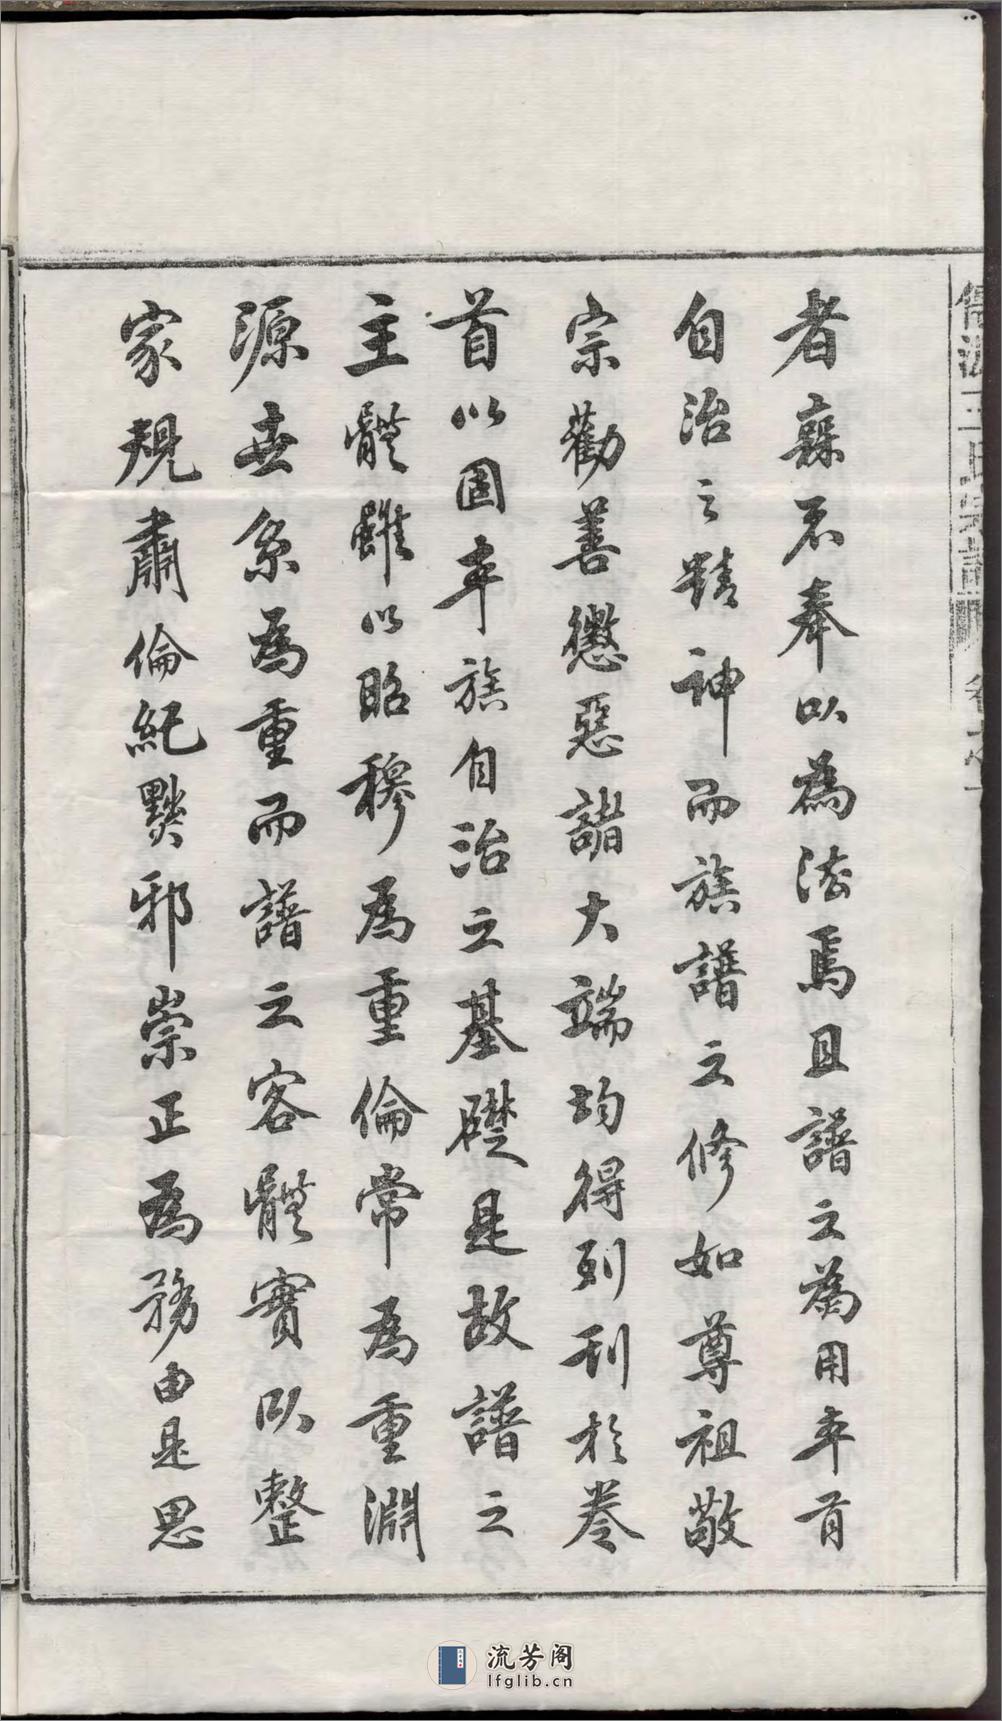 者寐不奉以為法焉且譜之為用率首
自治之精神而族譜之修如尊祖敬
宗勸善懲惡諸大端均得列刊於卷
首以固率族自治之基礎是故譜之
主體雖以昭穆為重倫常為重淵
源世系為重而譜之客體實以整
家規肅倫紀黜邪崇正為務由是思
王氏宗譜
流芳阁
lfglib.cn